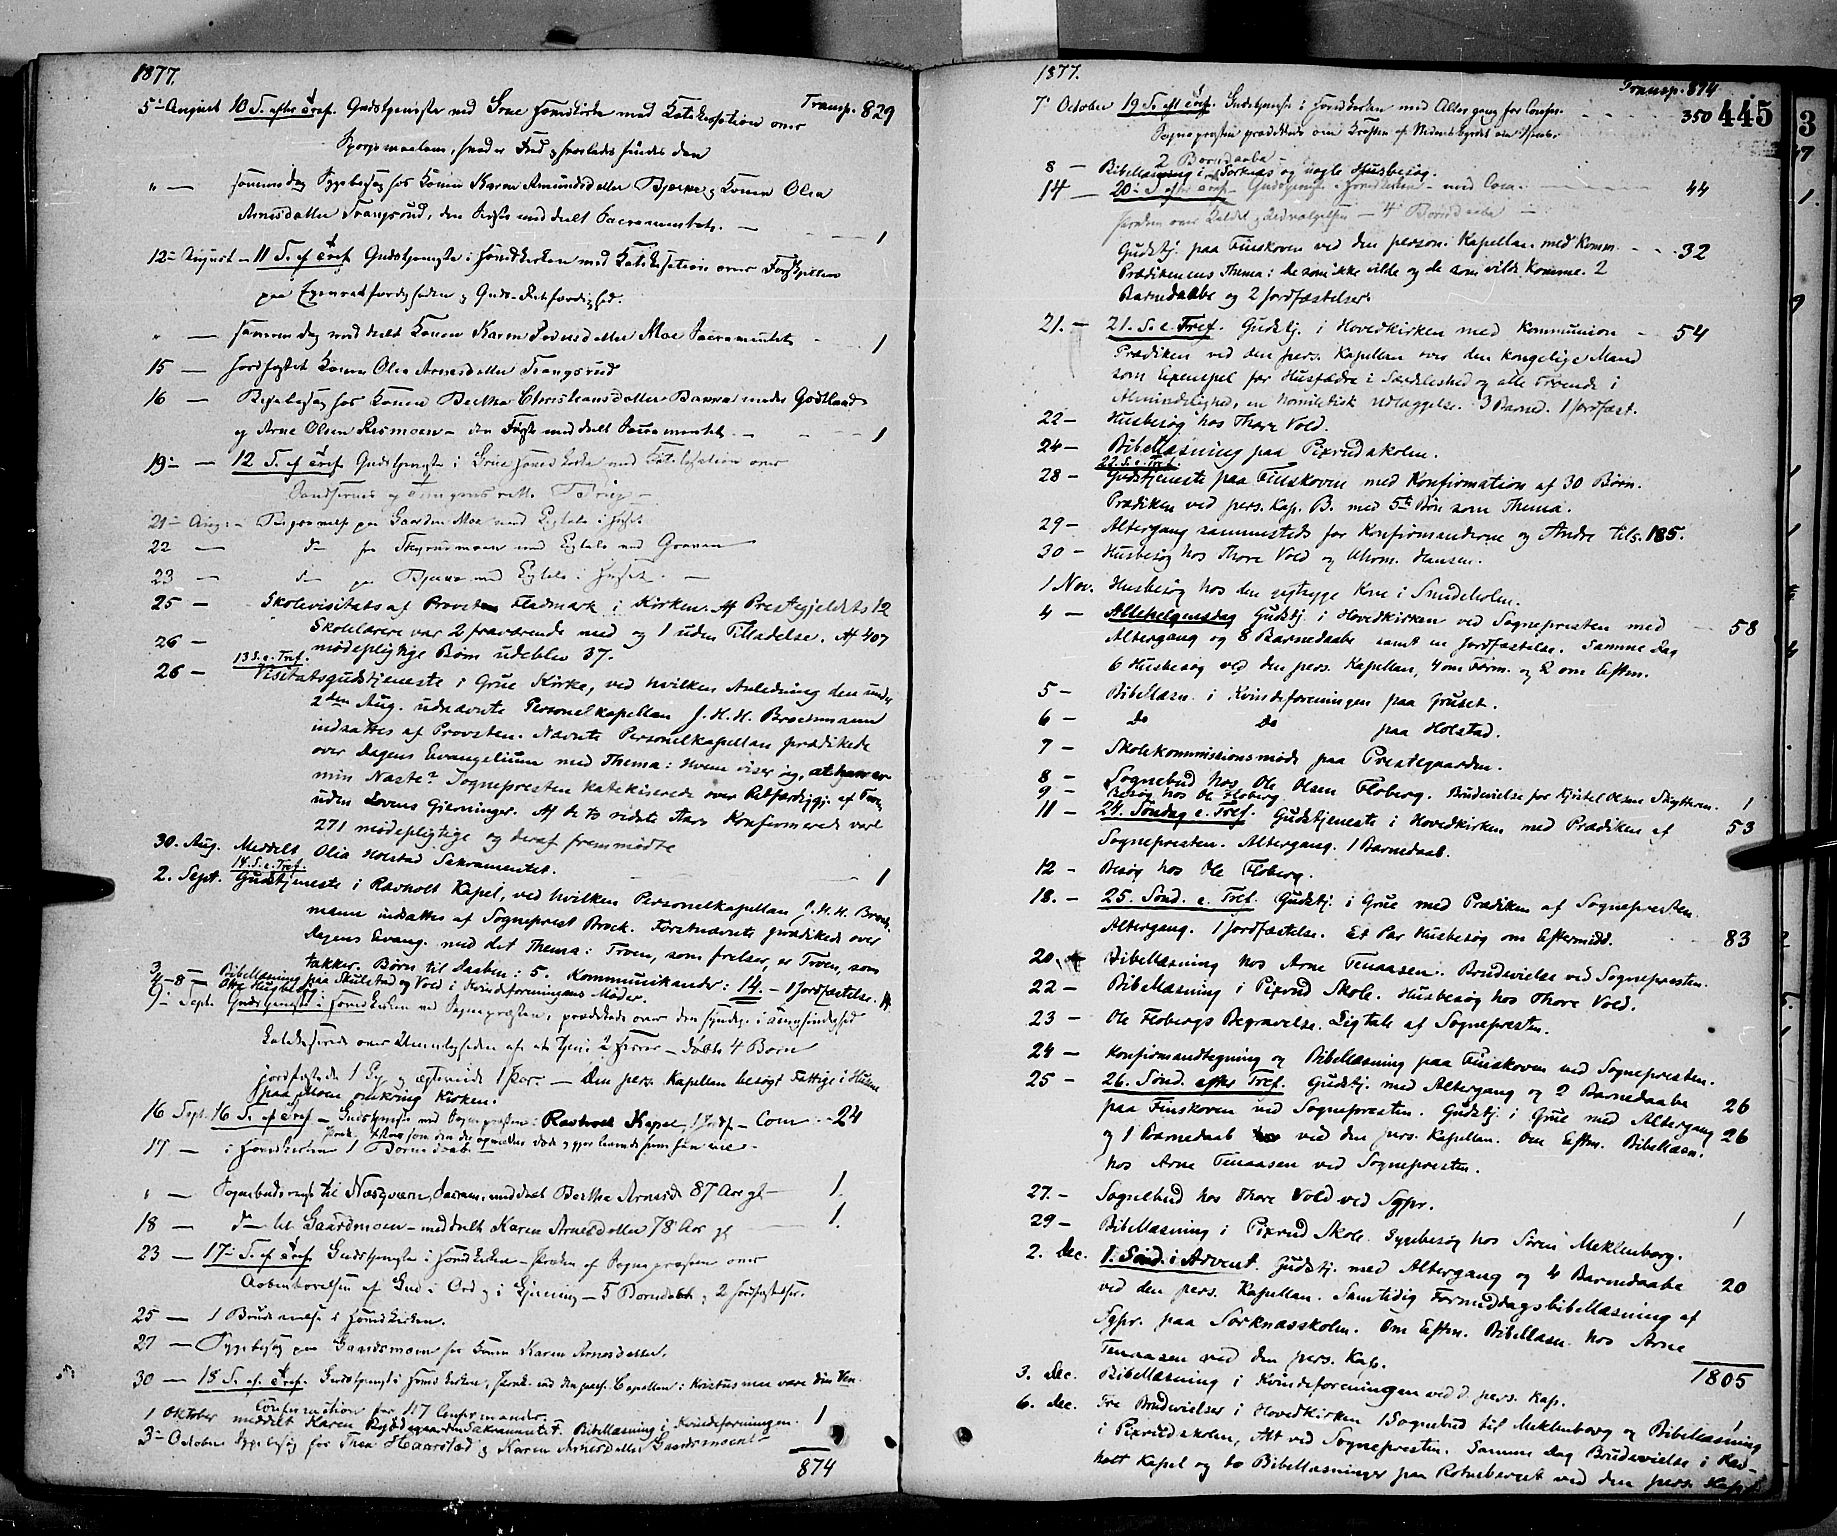 1877.
5- August 10 S. efter Tref. Gudstjeneste ved Grue Hovedkirke med Katekisation over Transp. 829
Spørgsmaalene, hvad er Fred og hvorledes findes den
" — samme dag Sygebesøg hos Konen Karen Amundsdatter Bjerke og Konen Olea
Arnesdatter Frangsrud, den sidste meddelt Sacramentet. — 1
12- August - 11 S. ef Tref Gudstjeneste i Hovedkirken med Katekisation over Forskjellen
paa Egenretfærdigheden og Guds-Retfærdighed.
" — samme dag meddelt Konen Karen Pedersdatter Moe Sacramentet 1
15 — Jordfæstet Konen Olea Arnesdatter Frangsrud
16 — Sygebesøg hos Konen Berthe Christiansdatter under Godtland
og Arne Olsen Rismoen — den Første meddelt Sacramentet. — 1
19- — 12 S. ef Tref Gudstjeneste i Grue Hovedkirke med Katekisation over
21- Aug: - paa Gaarden Moe med Ligtale i Huset
22 — do fra Skyrudmoen med Ligtale ved Graven
23 — do paa Bjerke med Ligtale i Huset. —
25 — Skolevisitats af Provsten Fladmark i Kirken. Af Prestegjeldets 12
Skolelærere var 2 fraværende med og 1 uden Tilladelse. Af 407
26 — mødepligtige Børn udeblev 37.
13 S. e. Tref.
26 — Visitatsgudstjeneste i Grue Kirke, ved hvilken Anledning den under
2den Aug. udnævnte Personelkapellan J. H. H. Brochmann
indsattes af Provsten. Nævnte Personelkapellan prædikede
over Dagens Evangelium med Thema: Hvem viser jeg, at han er
min Næste? Sognepresten katekiserede over Retfærdiggj. af Troen
uden Lovens Gjerninger. Af de to sidste Aars Konfirmerede vare
271 mødepligtige og deraf fremmødte
30. Aug. Meddelt Olia Holstad Sakramentet. — 1
14. S. e. Tref.
2. Sept. Gudstjeneste i Ravholt Kapel, ved hvilken Personelkapellan J. H. H. Broch-
mann indsattes af Sogneprest Brock. Førstnævnte prædikede over
Dagens Evang. med det Thema: Troen, som frelser, er Troen, som
takker. Børn til Daaben: 5. Kommunikander: 14. — 1 Jordfæstelse. 14
3 — Bibellæsning paa Skulstad og Vold i Kvindeforeningens Møder.
4-8 — Otte Husbesøg
9- Sept. Gudstjeneste i Hovedkirken ved Sognepræsten, prædikede over den
over Umuligheden af at tjene 2 Herrer — døbte 4 Børn
jordfæstede 1 Lig og ægteviede 1 Par. — Den pers. Kapellan besøgt Fattige i Husene
paa Moen omkring Kirken.
16 Sept. 16 S. ef Tref — Gudstjeneste ved Sognepræsten i Ravholt Kapel, 1 Jordf. — Com - 24
17 — i Hovedkirken 1 Barnedaab
" — Sognebudsreise til Næsqværn, Sacram. meddelt Berthe Arnesd. 87 Aar gl — 1.
18 — do til Gaardmoen — meddelt Karen Arnesdatter 78 Aar gl — 1.
23 — 17- S. ef Tref Gudstjeneste i Hovedkirken — Præken af Sognepræsten over
Aabenbarelsen af Gud i Ord og i Gjerning — 5 Barnedaab og 2 Jordfæstelser.
25 — 1 Brudevielse i Hovedkirken.
27 — Sygebesøg paa Gaardsmoen hos Konen Karen Arnesdatter.
30 — 18 S. ef. Tref. Gudstjeneste i Hovedkirken, Præk. ved den pers. Capellan: Kristus maa være din Ven.
Confirmation for 117 Confirmander.
1 Oktober meddelt Karen Sakramentet. Bibellæsning i Kvindeforeningen. 1
3- October Sygebesøg hos Thea Haarstad og Karen Arnesdatter Gaardsmoen
874
1877.
Transp. 874
445
7' October 19 S. eft Tref. Gudstjeneste i Hovedkirken med Altergang for Confir. 350
Sognepræsten prædikede om Kraften af
2 Barnedaabe —
8 — Bibellæsning i Sorknæs og nogle Husbesøg.
14 — 20- S. efter Tref — Gudstjeneste i Hovedkirken — med Com. 44
Præken over Kaldet og Udvælgelsen — 4 Barnedaabe —
Gudstj. paa Finskoven ved den person. Kapellan. med Komm. 32
Prædikenens Thema: de som ikke vilde og de som vilde komme. 2
Barnedaabe og 2 Jordfæstelser.
21. — 21. S. e. Tref. Gudstj. i Hovedkirken med Kommunion — 54
Prædiken ved den pers. Kapellan over den kongelige Mand
som Exempel for Husfædre i Særdeleshed og alle Troende i
Almindelighed, en homiletisk Udlæggelse. 3 Barned. 1 Jordfæst.
22 — Husbesøg hos Thore Vold.
24 — Bibellæsning paa Pixrudskolen.
22. S. e. Tref.
28 — Gudstjeneste paa Finskoven med Konfirmation af 30 Børn.
Prædiken ved pers. Kap. B. med 5te Bøn som Thema.
29 — Altergang sammesteds for Konfirmanderne og Andre tils. 185.
30 — Husbesøg hos Thore Vold og Hansen.
1 Nov. Husbesøg hos den sygtrygge Kone i Smedeholen.
4 — Allehelgensdag Gudstj. i Hovedkirken ved Sognepresten med 58
Altergang og 8 Barnedaabe samt en Jordfæstelse. Samme Dag
6 Husbesøg ved den pers. Kapellan, 4 om Form. og 2 om Eftm.
5 — Bibellæsn. i Kvindeforeningen paa Gruset.
6 — Do Do paa Holstad.
7 — Skolekommissionsmøde paa Prestegaarden.
8 — Sognebud hos Ole Olsen Floberg. Brudevielse for Kjistel Olsen Skytteren. 1
9 — Besøg hos Ole Floberg
11 — 24. Søndag e. Tref. Gudstjeneste i Hovedkirken med Prædiken af 53
Sognepresten. Altergang. 1 Barnedaab.
12 — Besøg hos Ole Floberg.
18. — 25. Sønd. e. Tref. Gudstj. i Grue med Prædiken af Sognepresten.
Altergang. 1 Jordfæstelse. Et Par Husbesøg om Eftermidd. 83
20. — Bibellæsning hos Arne Tenaasen. Brudevielse ved Sognepresten.
22 — Bibellæsning i Pixrud Skole. Husbesøg hos Thore Vold.
23 — Ole Flobergs Begravelse. Ligtale af Sognepresten.
24 — Konfirmandtegning og Bibellæsning paa Finskoven ved Sognepresten.
25 — 26. Sønd. efter Tref. Gudstj. med Altergang og 2 Barnedaabe 26
paa Finskoven ved Sognepresten. Gudstj i Grue med Altergang 26
og 1 Barnedaab ved den pers. Kapellan. Om Eftm. Bibellæsn.
hos Arne Tenaasen ved Sognepresten.
27. — Sognebud hos Thore Vold ved Sgpr. 1
29 — Bibellæsning i Pixrud Skole. Sygebesøg hos Søren Meklenborg.
2. Dec. 1. Sønd. i Advent. Gudstj. med Altergang og 4 Barnedaabe 20
ved den pers. Kapellan. Samtidig Formiddagsbibellæsning af
Sgpr. paa Sorknæsskolen. Om Eftm. Bibellæsn. hos Arne
Tenaasen ved den pers. Kap.
1805
3. Dec. Bibellæsning i Kvindeforeningen ved d. pers. Kap.
6. Dec. Tre Brudevielser i Hovedkirken 1 Sognebud til Meklenborg og Bibellæsning 1
i Pixrudskolen, Alt ved Sognepresten. Samme Dag Brudevielse i Rav-
holt Kapel og to Bibellæsninger paa Rotneberget ved den pers. Kap.